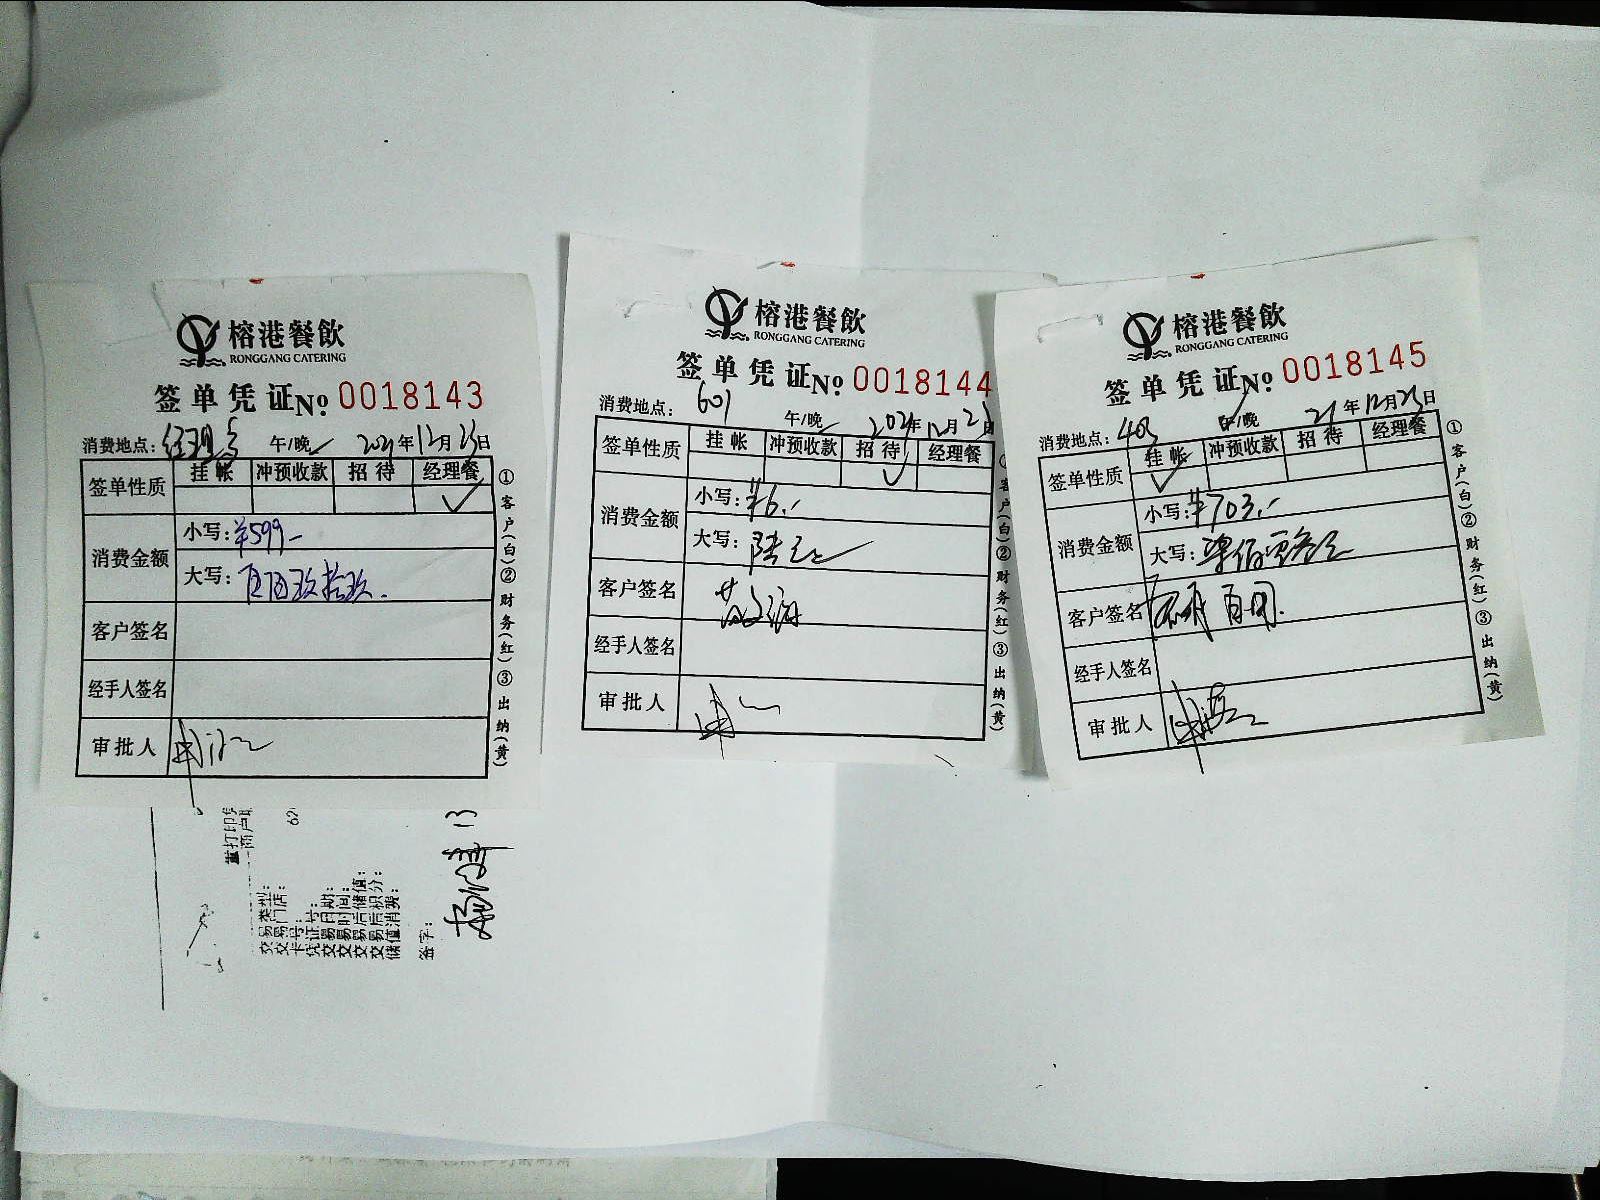 榕港餐飲
RONGGANG CATERING
签单凭证 No 0018143
消费地点: 午/晚 2021年12月23日
签单性质 挂帐 冲预收款 招待 经理餐
✓
消费金额 小写: ¥599-
大写: 伍佰玖拾玖
客户签名
经手人签名
审批人
①客户(白)②财务(红)③出纳(黄)
重打印
商户
62
交易类型:
交易门店:
卡号:
凭证号:
交易日期:
交易时间:
交易后储值:
交易后积分:
储值消费:
签字:
榕港餐飲
RONGGANG CATERING
签单凭证 No 0018144
消费地点: 601 午/晚 2021年12月23日
签单性质 挂帐 冲预收款 招待 经理餐
✓
消费金额 小写: ¥6.-
大写: 陆元
客户签名
经手人签名
审批人
客户(白)②财务(红)③出纳(黄)
榕港餐飲
RONGGANG CATERING
签单凭证 No 0018145
消费地点: 403 午/晚 21年12月23日
签单性质 挂帐 冲预收款 招待 经理餐
✓
消费金额 小写: ¥703.-
大写: 柒佰零叁元
客户签名
经手人签名
审批人
①客户(白)②财务(红)③出纳(黄)